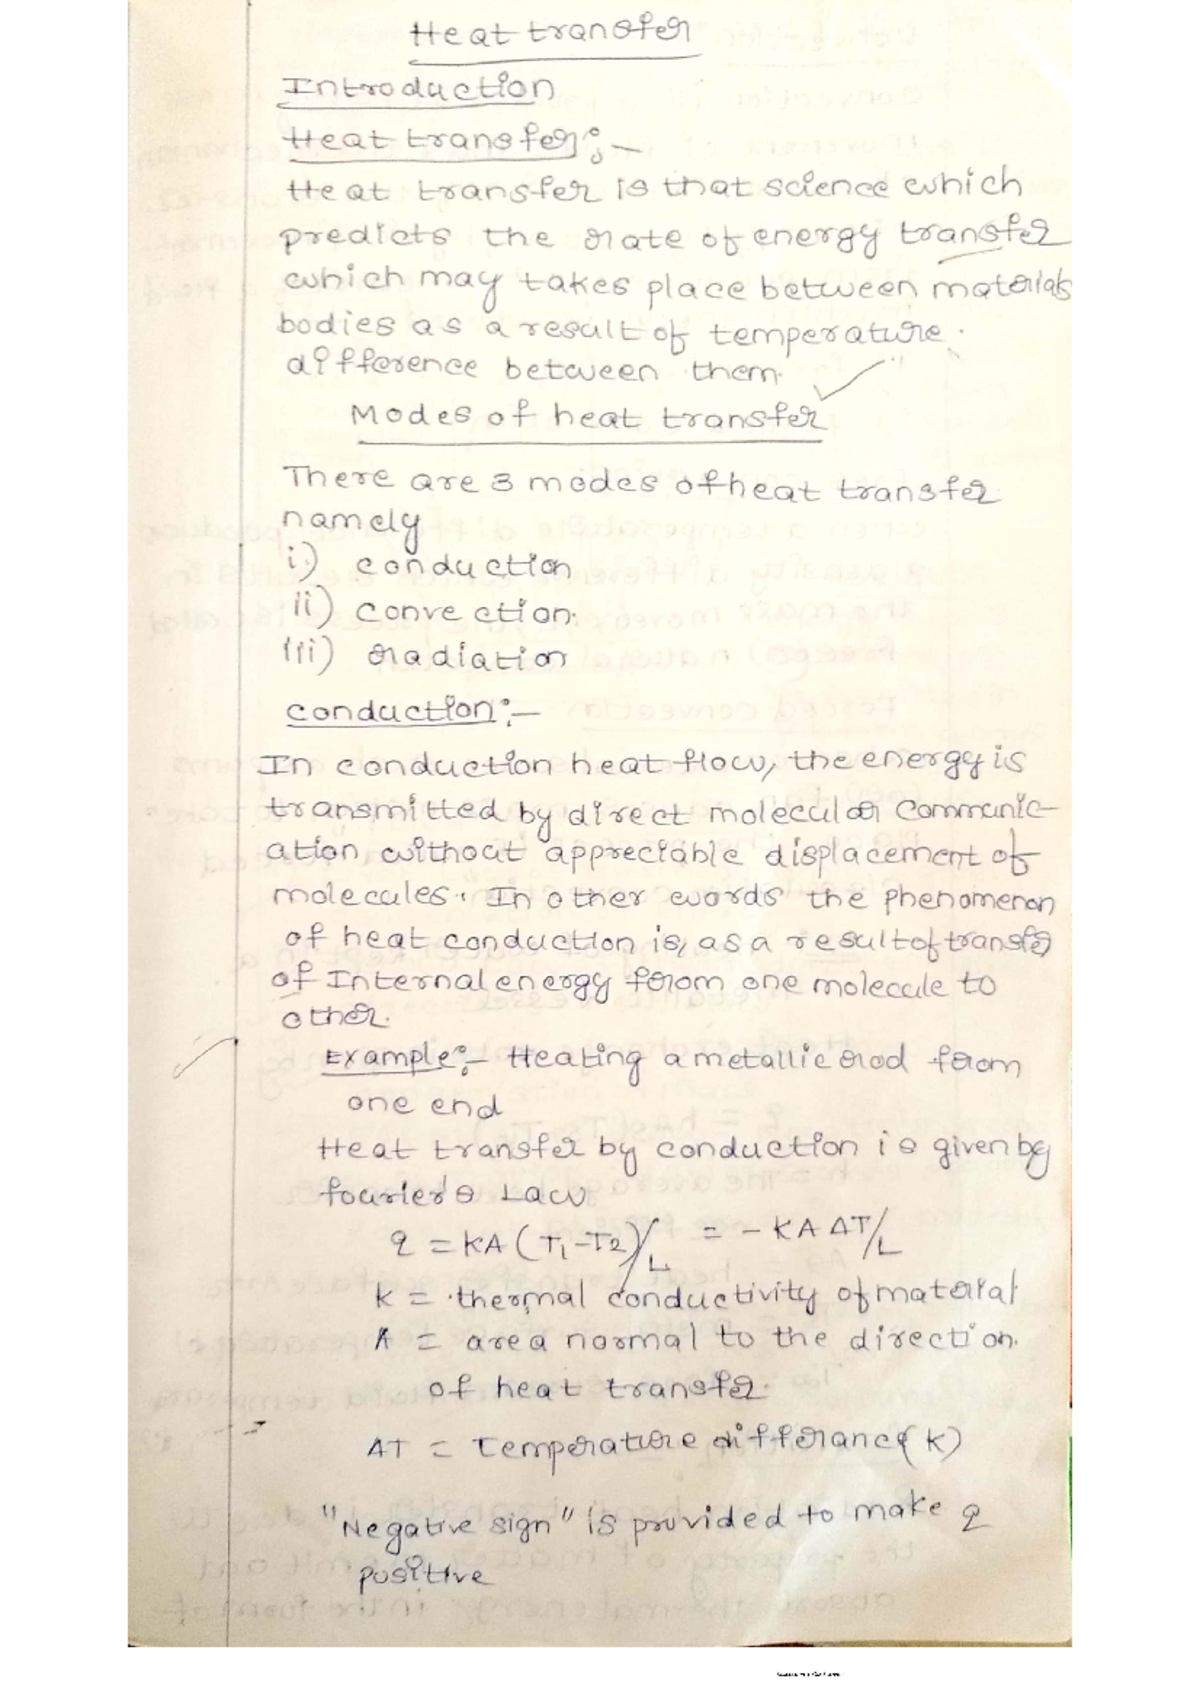 Heat transfer
Introduction
Heat transfer:-
Heat transfer is that science which
predicts the rate of energy transfer
which may takes place between materials
bodies as a result of temperature
difference between them.
Modes of heat transfer
There are 3 modes of heat transfer
namely
i) conduction
ii) convection.
iii) radiation
conduction:-
In conduction heat flow, the energy is
transmitted by direct molecular communic-
ation without appreciable displacement of
molecules. In other words the phenomenon
of heat conduction is, as a result of transfer
of Internal energy from one molecule to
other.
Example:- Heating a metallic rod from
one end
Heat transfer by conduction is given by
fourier's Law
q = KA (T1-T2)/L = - KA ΔT/L
K = thermal conductivity of material
A = area normal to the direction.
of heat transfer.
ΔT = Temperature differance (K)
"Negative sign" is provided to make q
positive